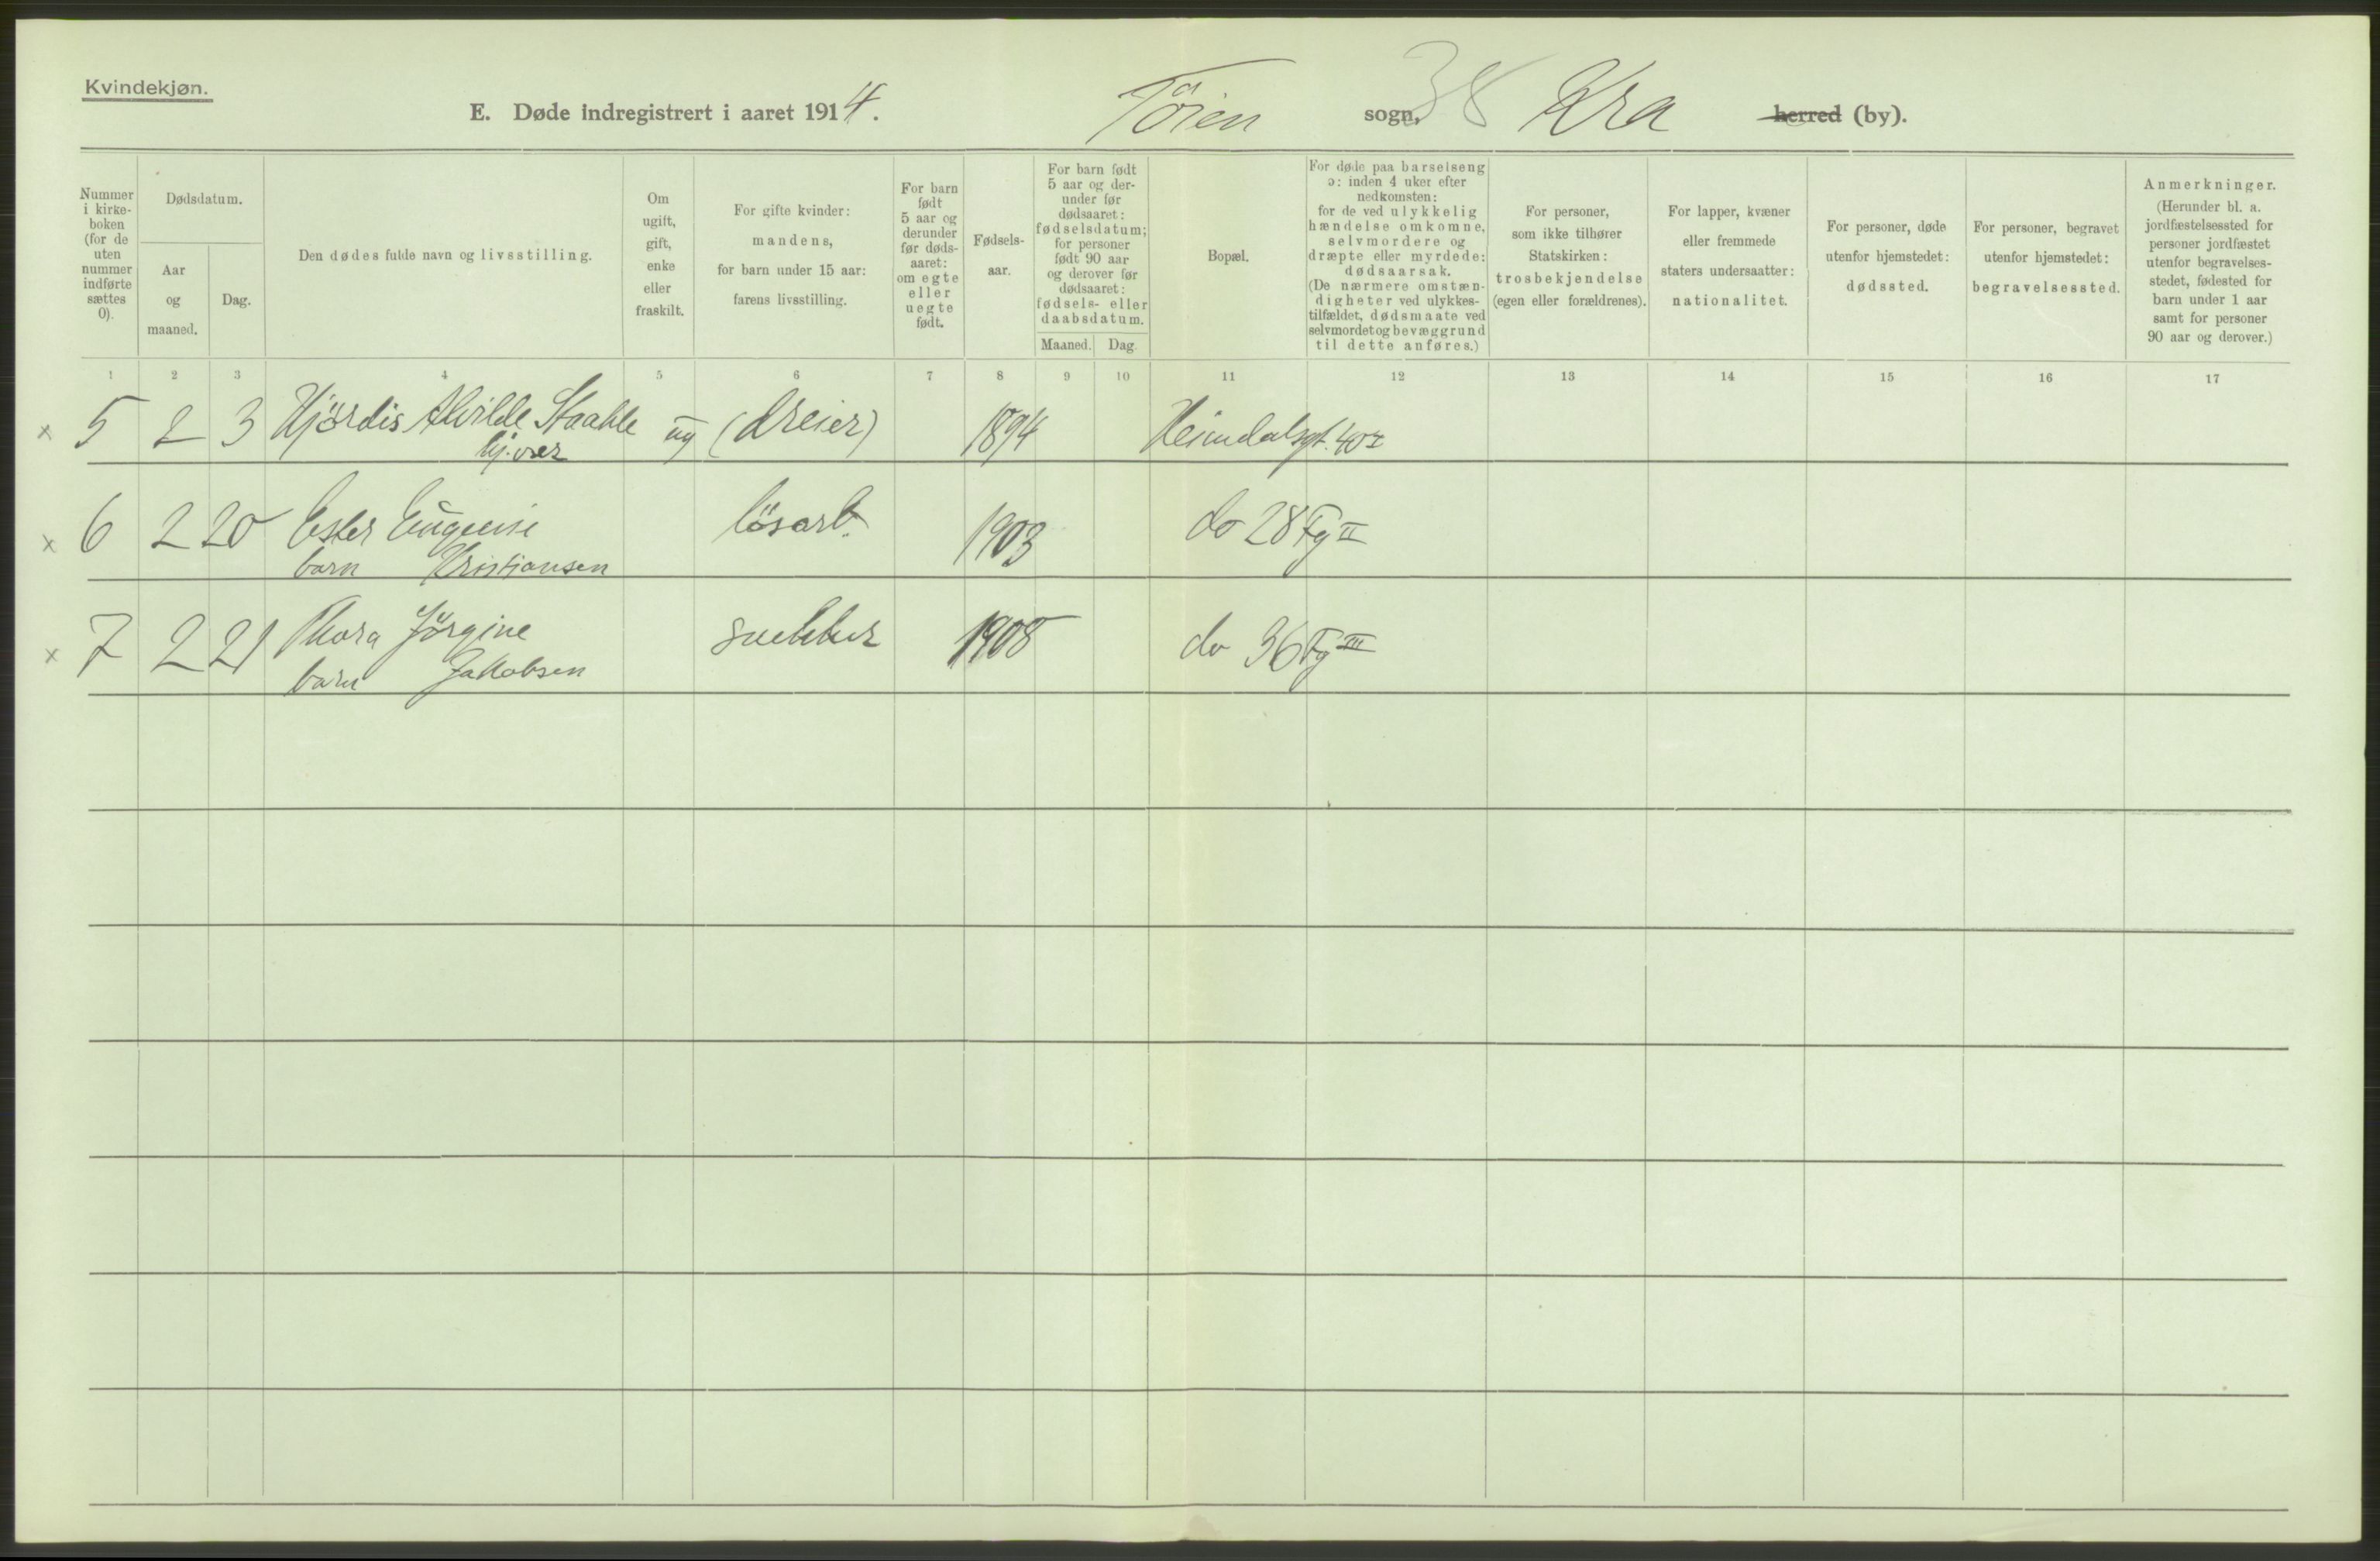 Kvindekjøn.
E. Døde indregistrert i aaret 1914. Töien sogn, 38 Kra herred (by).
Nummer i kirke-boken (for de uten nummer indførte sættes 0).
Dødsdatum.
Aar og maaned.
Dag.
Den dødes fulde navn og livsstilling.
Om ugift, gift, enke eller fraskilt.
For gifte kvinder: mandens, for barn under 15 aar: farens livsstilling.
For barn født 5 aar og derunder før døds-aaret: om egte eller uegte født.
Fødsels-aar.
For barn født 5 aar og der-under før dødsaaret: fødselsdatum; for personer født 90 aar og derover før dødsaaret: fødsels- eller daabsdatum.
Maaned.
Dag.
Bopæl.
For døde paa barselseng ɔ: inden 4 uker efter nedkomsten: for de ved ulykkelig hændelse omkomne, selvmordere og dræpte eller myrdede: dødsaarsak. (De nærmere omstæn-digheter ved ulykkes-tilfældet, dødsmaate ved selvmordet og bevæggrund til dette anføres.)
For personer, som ikke tilhører Statskirken: trosbekjendelse (egen eller forældrenes).
For lapper, kvæner eller fremmede staters undersaatter: nationalitet.
For personer, døde utenfor hjemstedet: dødssted.
For personer, begravet utenfor hjemstedet: begravelsessted.
Anmerkninger. (Herunder bl. a. jordfæstelsessted for personer jordfæstet utenfor begravelses-stedet, fødested for barn under 1 aar samt for personer 90 aar og derover.)
1 2 3 4 5 6 7 8 9 10 11 12 13 14 15 16 17
x 5 2 3 Hjördis Alvilde Staahle ug (dreier) 1894 Heimdalsgt. 40 I
x 6 2 20 Ester Eugenie lösarb. 1903 do 28 Fg II
barn Kristiansen
x 7 2 21 Thora Jörgine snekker 1908 do 36 Fg III
barn Jakobsen